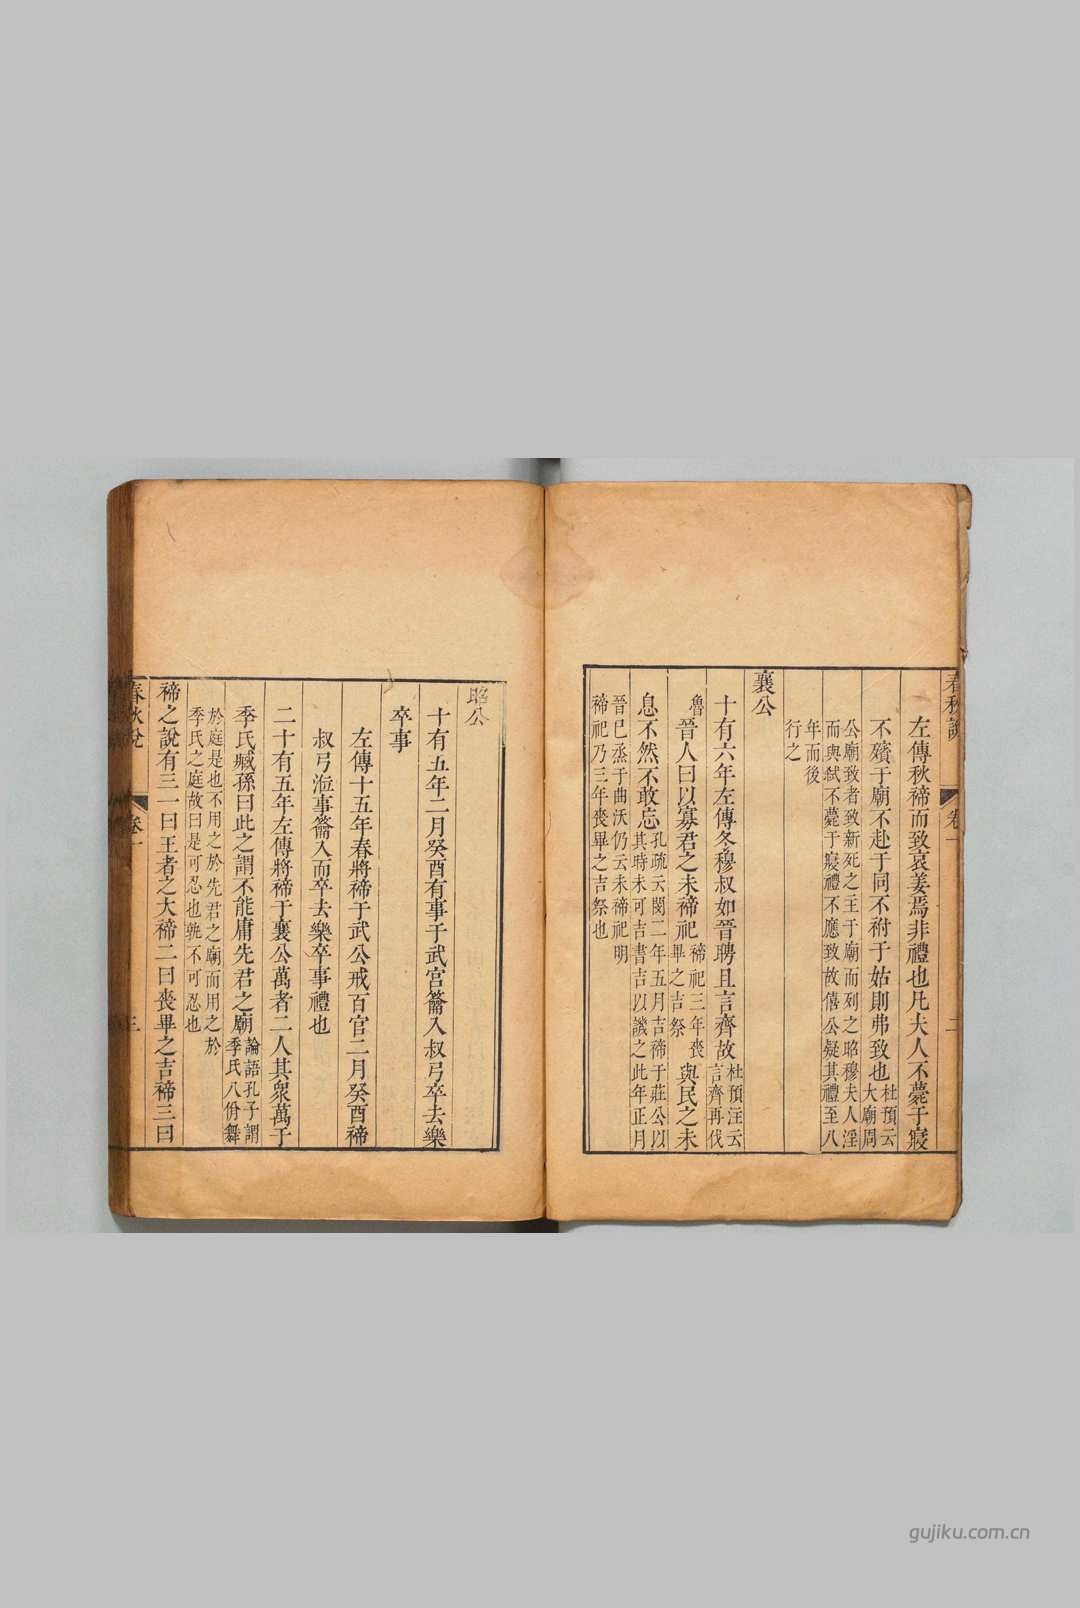 春秋說 卷一 二
左傳秋禘而致哀姜焉非禮也凡夫人不薨于寢
不殯于廟不赴于同不祔于姑則弗致也
杜預云
大廟周
公廟致者致新死之主于廟而列之昭穆夫人淫
而與弒不薨于寢禮不應致故僖公疑其禮至八
年而後
行之
襄公
十有六年左傳冬穆叔如晉聘且言齊故
杜預注云
言齊再伐
魯
晉人曰以寡君之未禘祀
禘祀三年喪
畢之吉祭
與民之未
息不然不敢忘
孔疏云閔二年五月吉禘于莊公以
其時未可吉書吉以譏之此年正月
晉已烝于曲沃仍云未禘祀明
禘祀乃三年喪畢之吉祭也
昭公
十有五年二月癸酉有事于武宮籥入叔弓卒去樂
卒事
左傳十五年春將禘于武公戒百官二月癸酉禘
叔弓涖事籥入而卒去樂卒事禮也
二十有五年左傳將禘于襄公萬者二人其衆萬于
季氏臧孫曰此之謂不能庸先君之廟
論語孔子謂
季氏八佾舞
於庭是也不用之於先君之廟而用之於
季氏之庭故曰是可忍也孰不可忍也
禘之說有三一曰王者之大禘二曰喪畢之吉禘三曰
春秋說 卷一 三
gujiku.com.cn